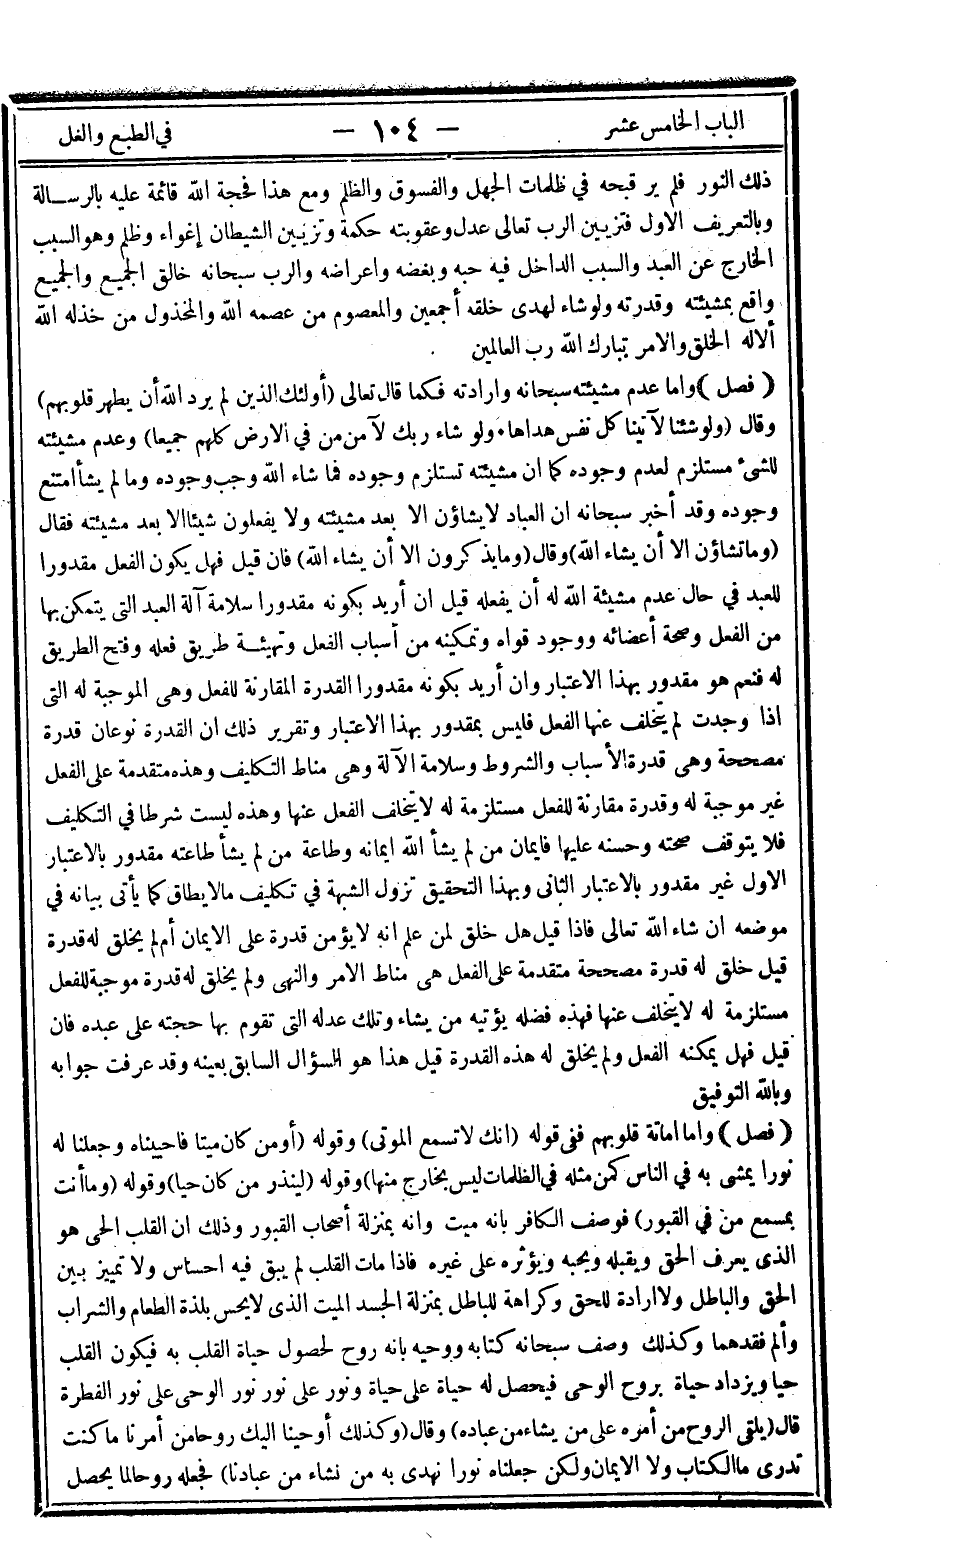 الباب الخامس عشر — ١٠٤ — في الطبع والغل
ذلك النور فلم ير قبحه في ظلمات الجهل والفسوق والظلم ومع هذا فحجة الله قائمة عليه بالرسالة
وبالتعريف الاول فتزيين الرب تعالى عدل وعقوبته حكمة وتزيين الشيطان إغواء وظلم وهو السبب
الخارج عن العبد والسبب الداخل فيه حبه وبغضه واعراضه والرب سبحانه خالق الجميع والجميع
واقع بمشيئته وقدرته ولو شاء لهدى خلقه أجمعين والمعصوم من عصمه الله والمخذول من خذله الله
ألا له الخلق والامر تبارك الله رب العالمين
( فصل ) واما عدم مشيئته سبحانه وارادته فكما قال تعالى (أولئك الذين لم يرد الله أن يطهر قلوبهم)
وقال (ولو شئنا لآتينا كل نفس هداها، ولو شاء ربك لآمن من في الارض كلهم جميعا) وعدم مشيئته
للشئ مستلزم لعدم وجوده كما ان مشيئته تستلزم وجوده فما شاء الله وجب وجوده وما لم يشأ امتنع
وجوده وقد أخبر سبحانه ان العباد لا يشاؤن الا بعد مشيئته ولا يفعلون شيئا الا بعد مشيئته فقال
(وما تشاؤن الا أن يشاء الله) وقال (وما يذكرون الا أن يشاء الله) فان قيل فهل يكون الفعل مقدورا
للعبد في حال عدم مشيئة الله له أن يفعله قيل ان أريد بكونه مقدورا سلامة آلة العبد التى يتمكن بها
من الفعل وصحة أعضائه ووجود قواه وتمكينه من أسباب الفعل وتهيئة طريق فعله وفتح الطريق
له فنعم هو مقدور بهذا الاعتبار وان أريد بكونه مقدورا القدرة المقارنة للفعل وهى الموجبة له التى
اذا وجدت لم يتخلف عنها الفعل فليس بمقدور بهذا الاعتبار وتقرير ذلك ان القدرة نوعان قدرة
مصححة وهى قدرة الأسباب والشروط وسلامة الآلة وهى مناط التكليف وهذه متقدمة على الفعل
غير موجبة له وقدرة مقارنة للفعل مستلزمة له لا يتخلف الفعل عنها وهذه ليست شرطا في التكليف
فلا يتوقف صحته وحسنه عليها فايمان من لم يشأ الله ايمانه وطاعة من لم يشأ طاعته مقدور بالاعتبار
الاول غير مقدور بالاعتبار الثانى وبهذا التحقيق تزول الشبهة في تكليف مالا يطاق كما يأتى بيانه في
موضعه ان شاء الله تعالى فاذا قيل هل خلق لمن علم انه لا يؤمن قدرة على الايمان أم لم يخلق له قدرة
قيل خلق له قدرة مصححة متقدمة على الفعل هى مناط الامر والنهى ولم يخلق له قدرة موجبة للفعل
مستلزمة له لا يتخلف عنها فهذه فضله يؤتيه من يشاء وتلك عدله التى تقوم بها حجته على عبده فان
قيل فهل يمكنه الفعل ولم يخلق له هذه القدرة قيل هذا هو السؤال السابق بعينه وقد عرفت جوابه
وبالله التوفيق
( فصل ) واما اماتة قلوبهم ففى قوله (انك لا تسمع الموتى) وقوله (أو من كان ميتا فاحييناه وجعلنا له
نورا يمشى به في الناس كمن مثله في الظلمات ليس بخارج منها) وقوله (لينذر من كان حيا) وقوله (وما أنت
بمسمع من في القبور) فوصف الكافر بانه ميت وانه بمنزلة أصحاب القبور وذلك ان القلب الحى هو
الذى يعرف الحق ويقبله ويحبه ويؤثره على غيره فاذا مات القلب لم يبق فيه احساس ولا تمييز بين
الحق والباطل ولا ارادة للحق وكراهة للباطل بمنزلة الجسد الميت الذى لا يحس بلذة الطعام والشراب
وألم فقدهما وكذلك وصف سبحانه كتابه ووحيه بانه روح لحصول حياة القلب به فيكون القلب
حيا ويزداد حياة بروح الوحى فيحصل له حياة على حياة ونور على نور نور الوحى على نور الفطرة
قال (يلقى الروح من أمره على من يشاء من عباده) وقال (وكذلك أوحينا اليك روحا من أمرنا ما كنت
تدرى ما الكتاب ولا الايمان ولكن جعلناه نورا نهدى به من نشاء من عبادنا) فجعله روحا لما يحصل